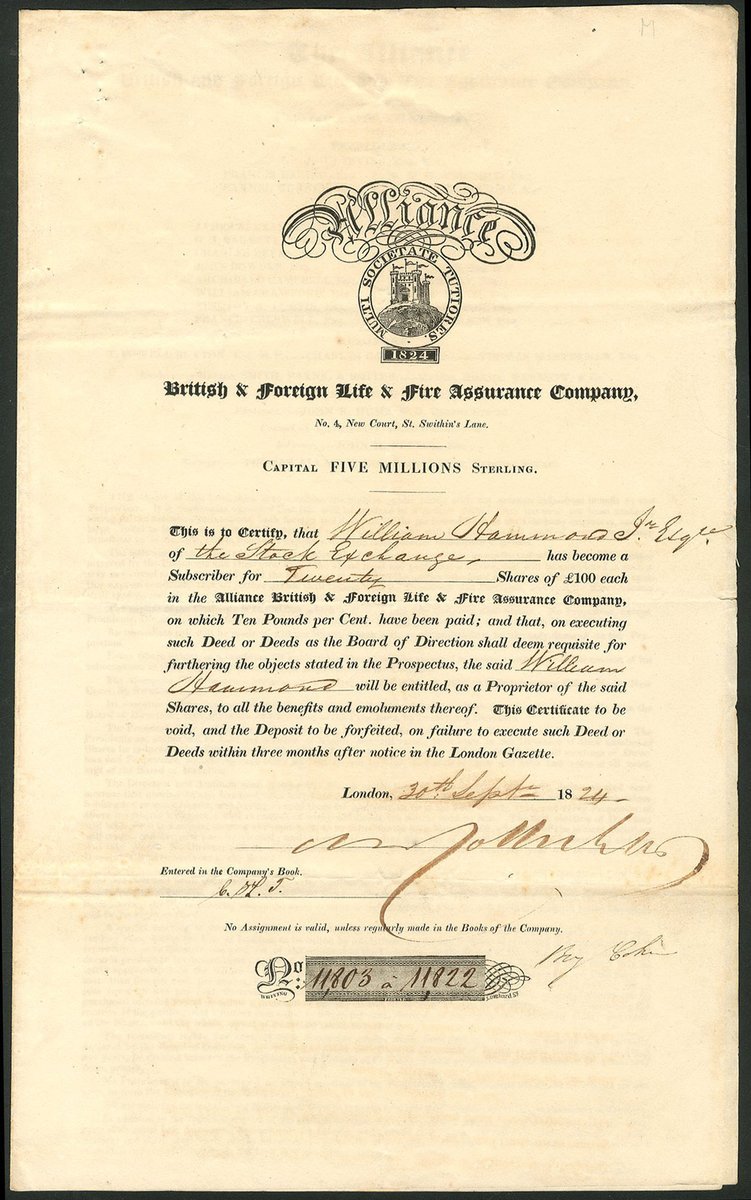 M
Alliance
MULTI SOCIETATE TUTIORES.
1824
British & Foreign Life & Fire Assurance Company,
No. 4, New Court, St. Swithin's Lane.
CAPITAL FIVE MILLIONS STERLING.
This is to Certify, that William Hammond Jnr. Esqre.
of the Stock Exchange, has become a
Subscriber for Twenty Shares of £100 each
in the Alliance British & Foreign Life & Fire Assurance Company,
on which Ten Pounds per Cent. have been paid; and that, on executing
such Deed or Deeds as the Board of Direction shall deem requisite for
furthering the objects stated in the Prospectus, the said William
Hammond will be entitled, as a Proprietor of the said
Shares, to all the benefits and emoluments thereof. This Certificate to be
void, and the Deposit to be forfeited, on failure to execute such Deed or
Deeds within three months after notice in the London Gazette.
London, 30th. Septr 1824
Entered in the Company's Book.
No Assignment is valid, unless regularly made in the Books of the Company.
No: 11,803 à 11,822
WHITING Lombard St